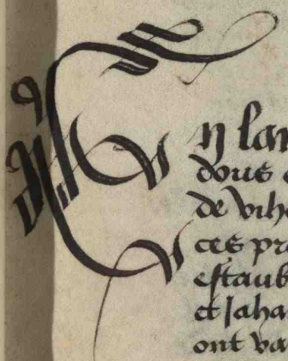 En lan
dous e
de vih
ces pr
estaub
et saha
ont va